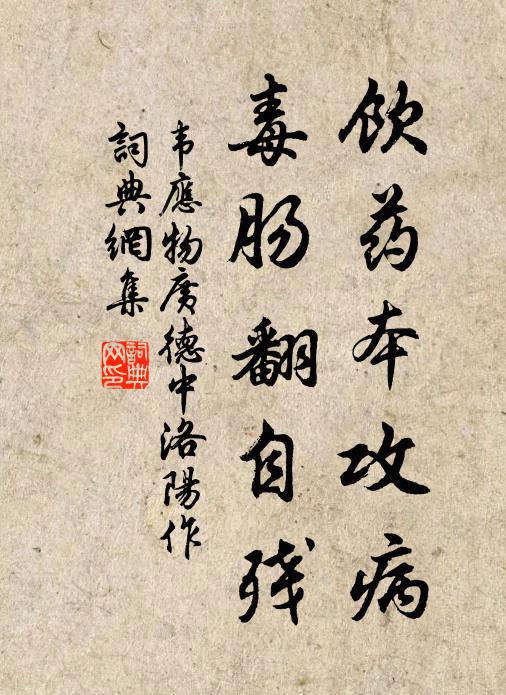 饮药本攻病
毒肠翻自残
韦應物廣德中洛陽作
詞典網集
詞典网印